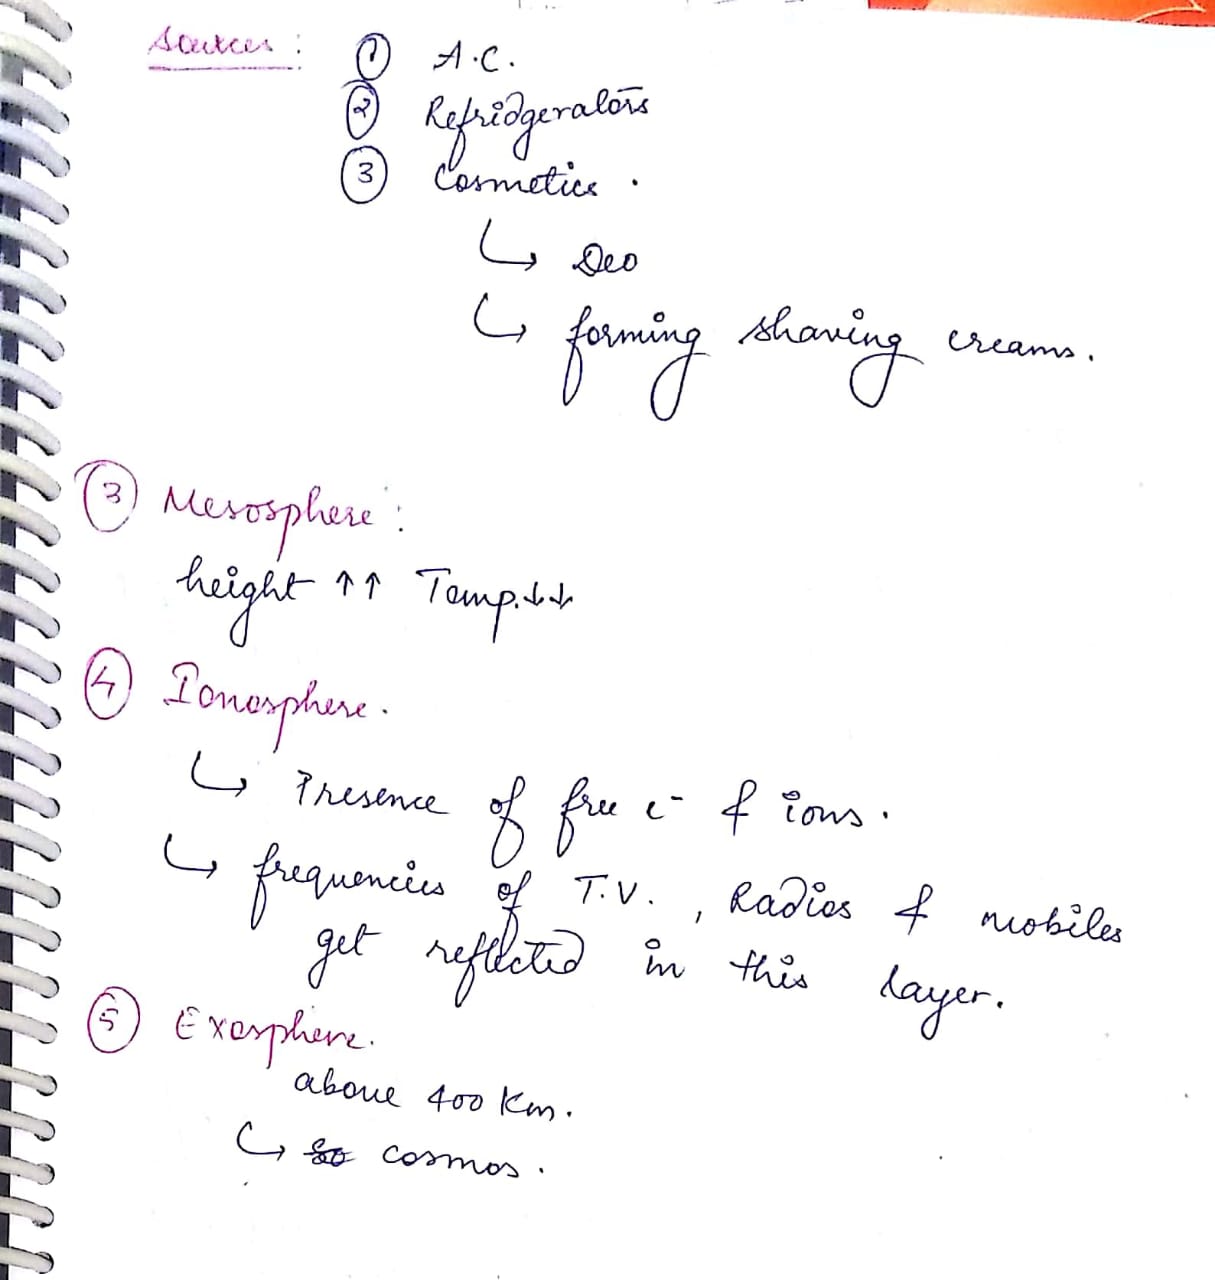 Sources :
① A.C.
② Refridgerators
③ Cosmetics .
↳ Deo
↳ forming shaving creams.
③ Mesosphere :
height ↑↑ Temp.↓↓
④ Ionosphere .
↳ Presence of free e⁻ & ions .
↳ frequencies of T.V. , Radios & mobiles
get reflected in this layer.
⑤ Exosphere.
above 400 Km.
↳ cosmos .